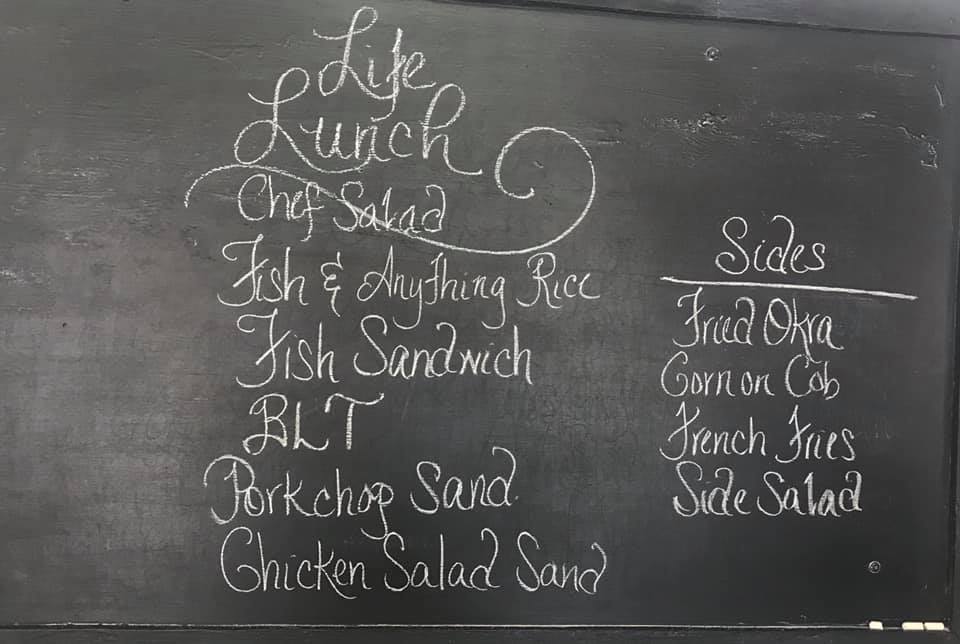 Life
Lunch
Chef Salad
Fish & Anything Rice
Fish Sandwich
BLT
Porkchop Sand
Chicken Salad Sand
Sides
Fried Okra
Corn on Cob
French Fries
Side Salad